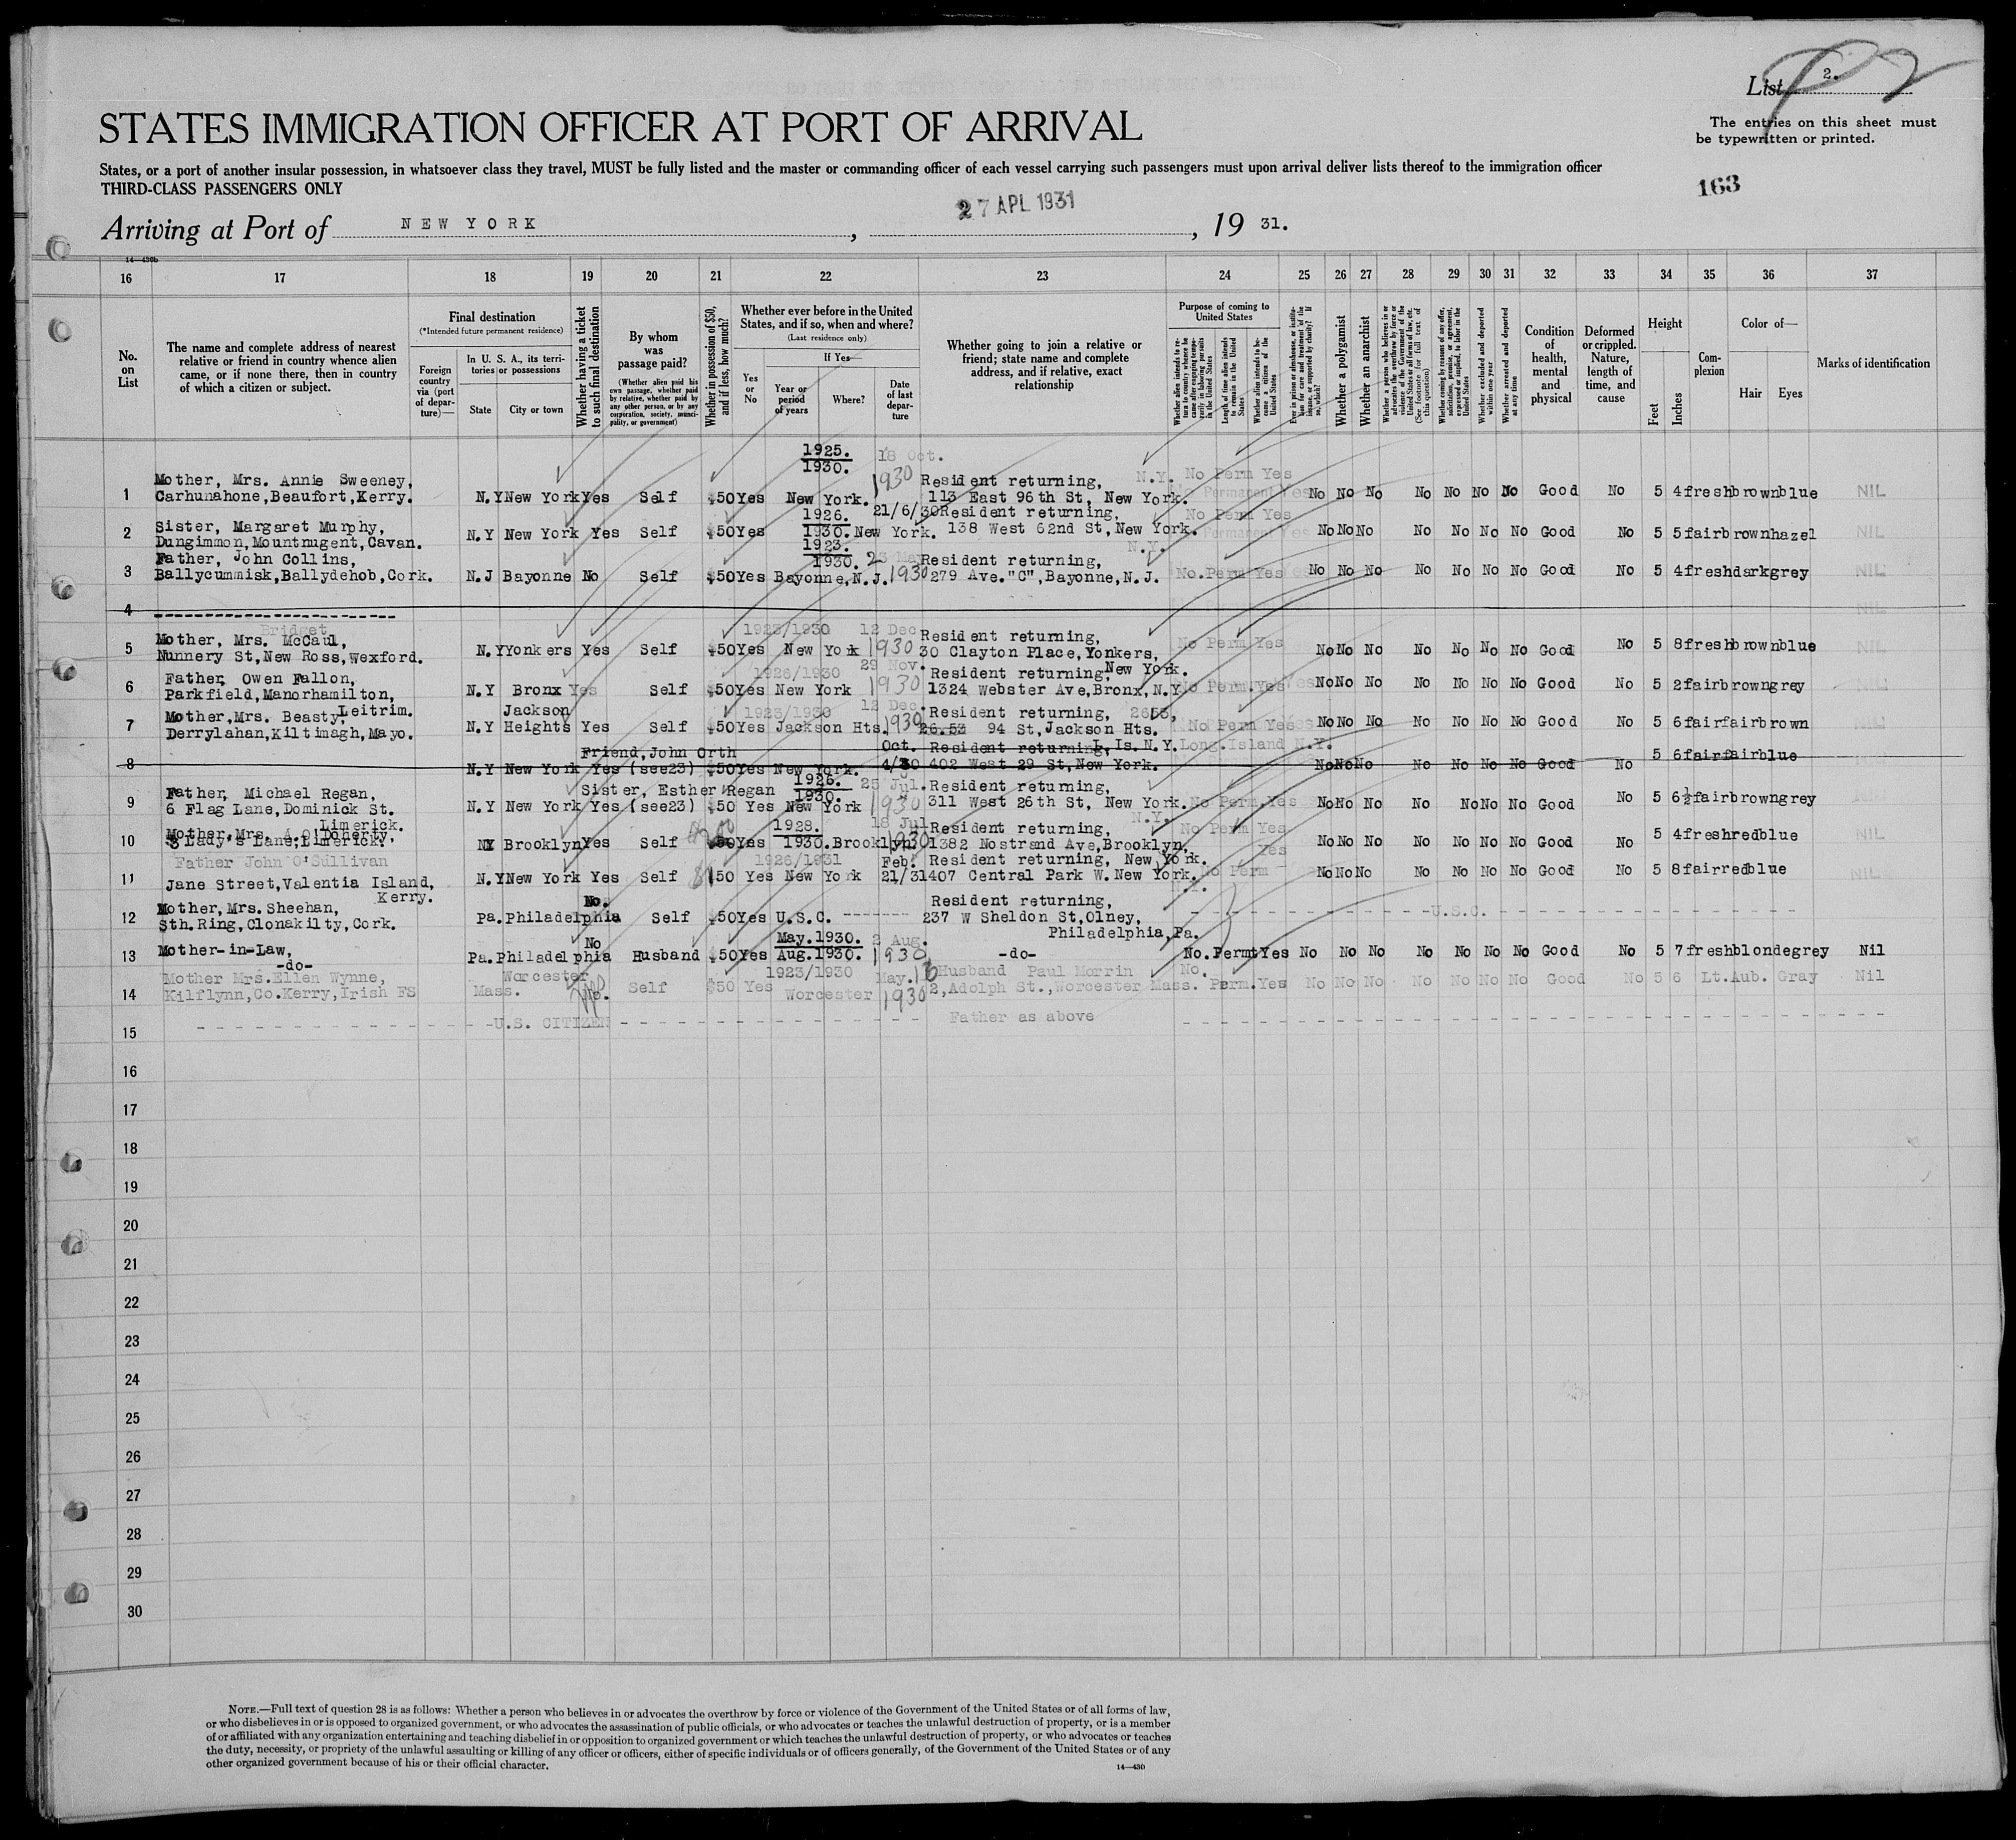 List 2.
P 2
The entries on this sheet must
be typewritten or printed.
163
STATES IMMIGRATION OFFICER AT PORT OF ARRIVAL
States, or a port of another insular possession, in whatsoever class they travel, MUST be fully listed and the master or commanding officer of each vessel carrying such passengers must upon arrival deliver lists thereof to the immigration officer
THIRD-CLASS PASSENGERS ONLY
27 APL 1931
Arriving at Port of NEW YORK , , 19 31.
14—430b
16 17 18 19 20 21 22 23 24 25 26 27 28 29 30 31 32 33 34 35 36 37
No. on List
The name and complete address of nearest
relative or friend in country whence alien
came, or if none there, then in country
of which a citizen or subject.
Final destination
(*Intended future permanent residence)
Foreign country via (port of departure)—
In U. S. A., its territories or possessions
State City or town
Whether having a ticket to such final destination
By whom was passage paid?
(Whether alien paid his own passage, whether paid by relative, whether paid by any other person, or by any corporation, society, municipality, or government)
Whether in possession of $50, and if less, how much?
Whether ever before in the United States, and if so, when and where?
(Last residence only)
If Yes—
Yes or No
Year or period of years
Where?
Date of last departure
Whether going to join a relative or
friend; state name and complete
address, and if relative, exact
relationship
Purpose of coming to United States
Length of time alien intends to remain in the United States
Whether alien intends to become a citizen of the United States
Whether a polygamist
Whether an anarchist
Whether excluded and deported within one year
Whether arrested and deported at any time
Condition of health, mental and physical
Deformed or crippled. Nature, length of time, and cause
Height
Feet Inches
Complexion
Color of—
Hair Eyes
Marks of identification
1 Mother, Mrs. Annie Sweeney, 1925. 18 Oct. Resident returning, N.Y. No Perm Yes
Carhunahone,Beaufort,Kerry. N.Y New York Yes Self $50 Yes 1930. New York. 1930 113 East 96th St, New York. No No No No No No No Good No 5 4 fresh brown blue NIL
2 Sister, Margaret Murphy, 1926. 21/6/30 Resident returning, No Perm Yes
Dungimmon,Mountnugent,Cavan. N.Y New York Yes Self $50 Yes 1930. New York. 138 West 62nd St,New York. No No No No No No No Good No 5 5 fair brown hazel NIL
3 Father, John Collins, 1923. 23 May Resident returning, N.Y.
Ballycummisk,Ballydehob,Cork. N.J Bayonne No Self $50 Yes 1930. Bayonne,N.J. 1930 279 Ave."C",Bayonne,N.J. No.Perm Yes No No No No No No No Good No 5 4 fresh dark grey NIL
4 NIL
5 Bridget 1923/1930 12 Dec
Mother, Mrs. McCaul, Resident returning, No Perm Yes
Nunnery St,New Ross,Wexford. N.Y Yonkers Yes Self $50 Yes New York 1930 30 Clayton Place,Yonkers, No No No No No No No Good No 5 8 fresh brown blue NIL
New York.
6 Father, Owen Fallon, 1926/1930 29 Nov. Resident returning,
Parkfield,Manorhamilton, N.Y Bronx Yes Self $50 Yes New York 1930 1324 Webster Ave,Bronx,N.Y No Perm.Yes No No No No No No No Good No 5 2 fair brown grey NIL
Leitrim.
7 Mother,Mrs. Beasty, Jackson 1923/1930 12 Dec. Resident returning, 2653,
Derrylahan,Kiltimagh,Mayo. N.Y Heights Yes Self $50 Yes Jackson Hts. 1930 26.53 94 St,Jackson Hts. No Perm Yes No No No No No No No Good No 5 6 fair fair brown NIL
L.Is. N.Y. Long.Island N.Y.
8 Friend,John Orth Oct. Resident returning,
N.Y New York Yes (see23) $50 Yes New York. 4/30 402 West 29 St,New York. No No No No No No No Good No 5 6 fair fair blue
9 Father, Michael Regan, Sister, Esther Regan 1926. 25 Jul. Resident returning,
6 Flag Lane,Dominick St. N.Y New York Yes (see23) $50 Yes 1930. New York 1930 311 West 26th St, New York. No Perm.Yes No No No No No No No Good No 5 6½ fair brown grey
Limerick. N.Y.
10 Mother,Mrs. A.O'Doherty, $200 1928. 18 Jul Resident returning, No Perm Yes
8 Lady's Lane,Limerick. NY Brooklyn Yes Self $50 Yes 1930. Brooklyn. 1930 1382 Nostrand Ave,Brooklyn, No No No No No No No Good No 5 4 fresh red blue NIL
11 Father John O'Sullivan 1926/1931 Feb. Resident returning, New York. Yes
Jane Street,Valentia Island, N.Y New York Yes Self $150 Yes New York 21/31 407 Central Park W.New York. No Perm No No No No No No No Good No 5 8 fair red blue NIL
Kerry. N.Y.
12 Mother,Mrs.Sheehan, No. Resident returning,
Sth.Ring,Clonakilty,Cork. Pa. Philadelphia Self $50 Yes U.S.C. ------- 237 W Sheldon St,Olney, - - - U.S.C. - - -
Philadelphia,Pa.
13 Mother-in-Law, No May.1930. 2 Aug.
-do- Pa. Philadelphia Husband $50 Yes Aug.1930. 1930 -do- No. Permt Yes No No No No No No No Good No 5 7 fresh blonde grey Nil
14 Mother Mrs.Ellen Wynne, Worcester 1923/1930 May.16 Husband Paul Morrin No.
Kilflynn,Co.Kerry,Irish FS Mass. No. Self $50 Yes Worcester 1930 2,Adolph St.,Worcester Mass. Perm.Yes No No No No No No No Good No 5 6 Lt.Aub. Gray Nil
15 - - - U.S. CITIZEN - - - Father as above - - -
16
17
18
19
20
21
22
23
24
25
26
27
28
29
30
NOTE.—Full text of question 28 is as follows: Whether a person who believes in or advocates the overthrow by force or violence of the Government of the United States or of all forms of law,
or who disbelieves in or is opposed to organized government, or who advocates the assassination of public officials, or who advocates or teaches the unlawful destruction of property, or is a member
of or affiliated with any organization entertaining and teaching disbelief in or opposition to organized government or which teaches the unlawful destruction of property, or who advocates or teaches
the duty, necessity, or propriety of the unlawful assaulting or killing of any officer or officers, either of specific individuals or of officers generally, of the Government of the United States or of any
other organized government because of his or their official character.
14—430